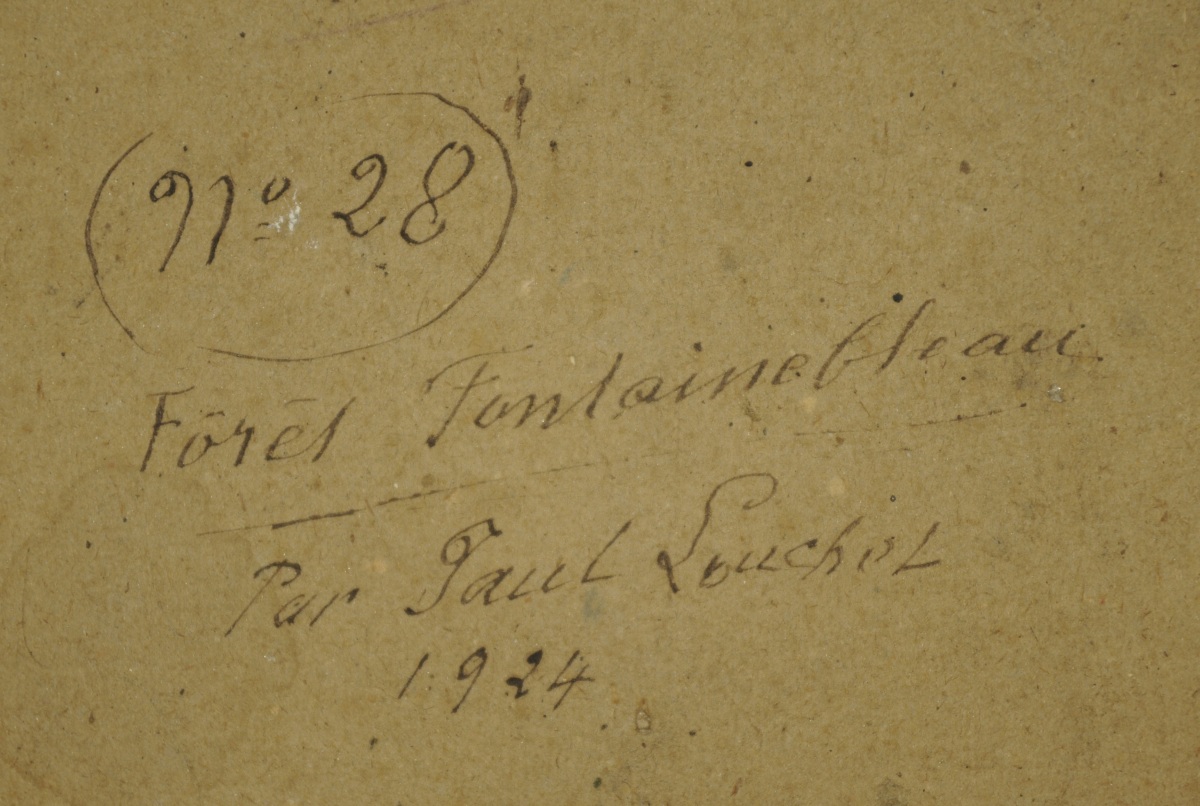 Nº 28
Fôrêt Fontainebleau
Par Paul Louchet
1924